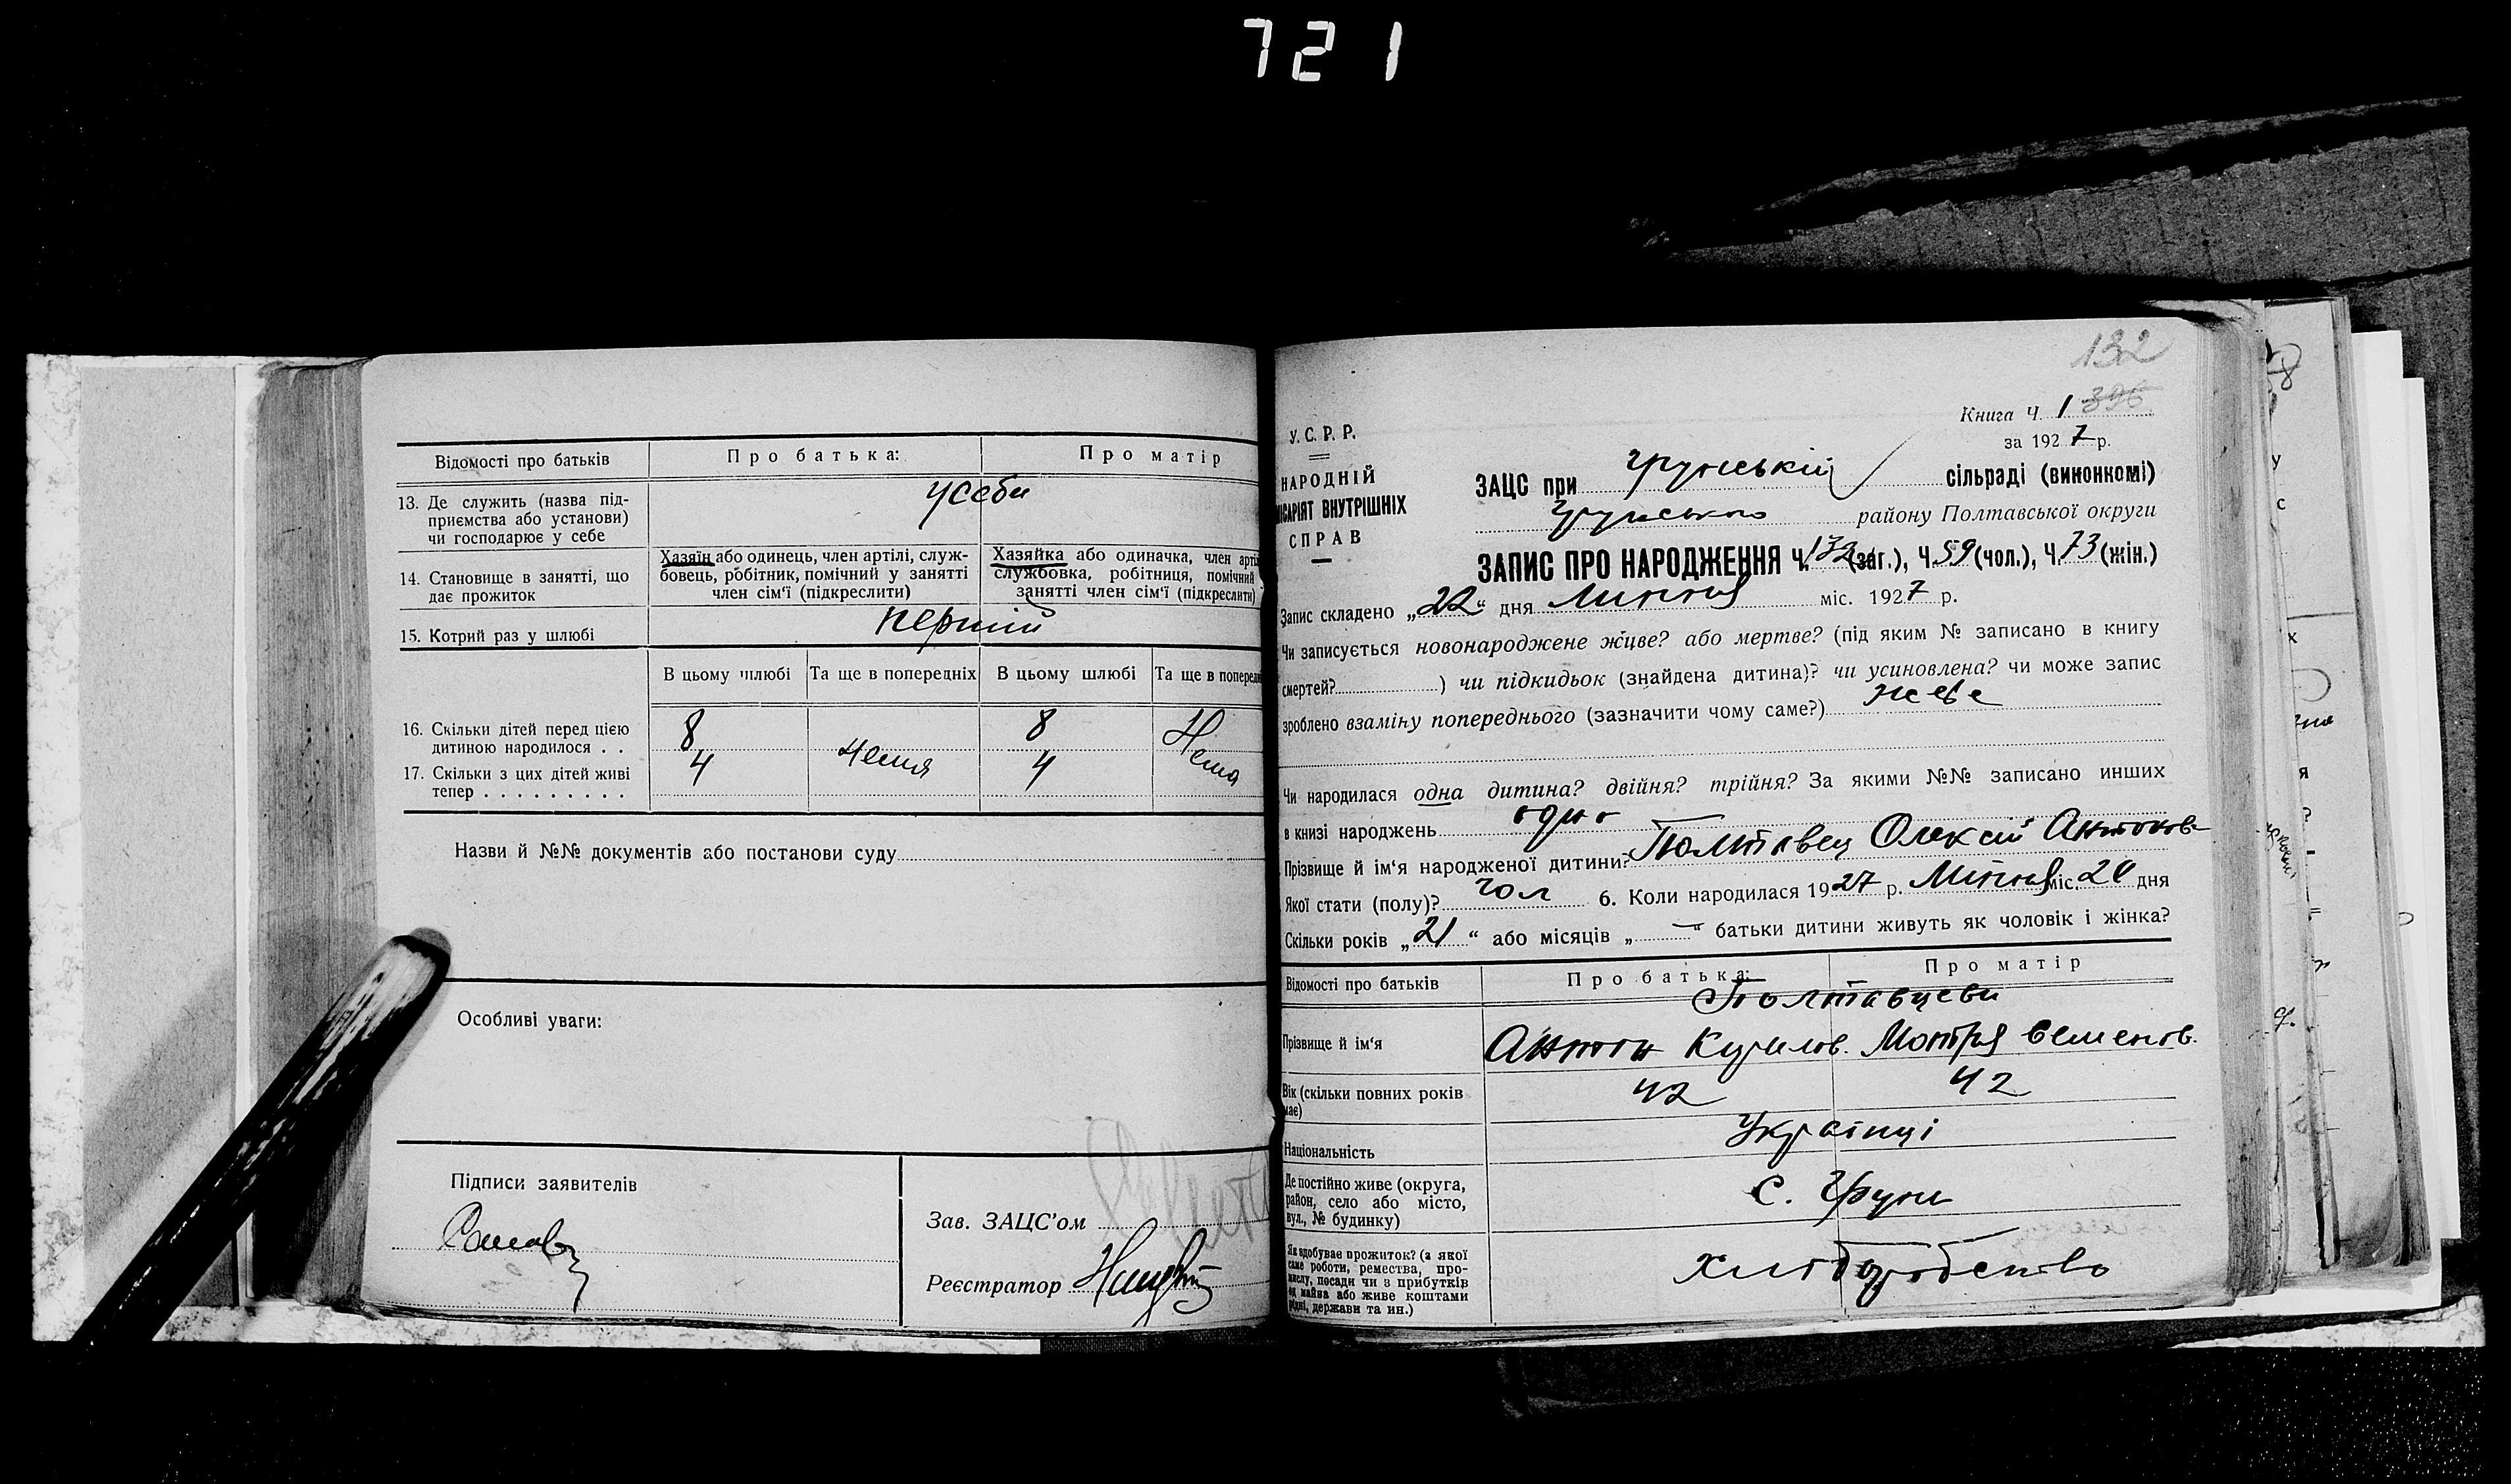 721
Відомості про батьків
Про батька:
Про матір
13. Де служить (назва під-
приємства або установи)
чи господарює у себе
усеби
14. Становище в занятті, що
дає прожиток
Хазяїн або одинець, член артілі, служ-
бовець, робітник, помічний у занятті
член сім'ї (підкреслити)
Хазяйка або одиначка, член арті
службовка, робітниця, помічний
занятті член сім'ї (підкреслити)
15. Котрий раз у шлюбі
перший
В цьому шлюбі
Та ще в попередніх
В цьому шлюбі
Та ще в поперед
16. Скільки дітей перед цією
дитиною народилося . .
8
8
17. Скільки з цих дітей живі
тепер . . . . . . . . .
4
4
Нема
Назви й №№ документів або постанови суду
Особливі уваги:
Підписи заявителів
Зав. ЗАЦС'ом
Реєстратор
132
396
Книга Ч. 1
за 1927 р.
У. С. Р. Р.
НАРОДНІЙ
ІСАРІЯТ ВНУТРІШНІХ
СПРАВ
ЗАЦС при Грунській сільраді (виконкомі)
Грунського району Полтавської округи
ЗАПИС ПРО НАРОДЖЕННЯ Ч. 132 (заг.), Ч. 59 (чол.), Ч. 73 (жін.)
Запис складено „22" дня Липня міс. 1927 р.
Чи записується новонароджене живе? або мертве? (під яким № записано в книгу
смертей? ) чи підкидьок (знайдена дитина)? чи усиновлена? чи може запис
зроблено взаміну попереднього (зазначити чому саме?) живе
Чи народилася одна дитина? двійня? трійня? За якими №№ записано инших
в книзі народжень одно
Прізвище й ім'я народженої дитини? Полтавец Олексій Антонов
Якої стати (полу)? чол 6. Коли народилася 1927 р. Липня міс. 20 дня
Скільки років „21" або місяців „—" батьки дитини живуть як чоловік і жінка?
Відомості про батьків
Про батька:
Про матір
Полтавцеви
Прізвище й ім'я
Антон Кирилов.
Мотря Семенов.
Вік (скільки повних років
має)
42
42
Національність
Українці
Де постійно живе (округа,
район, село або місто,
вул., № будинку)
с. Грунь
Як здобуває прожиток? (з якої
саме роботи, ремества, про-
мислу, посади чи з прибутків
од майна або живе коштами
рідні, держави та ин.)
хліборобство